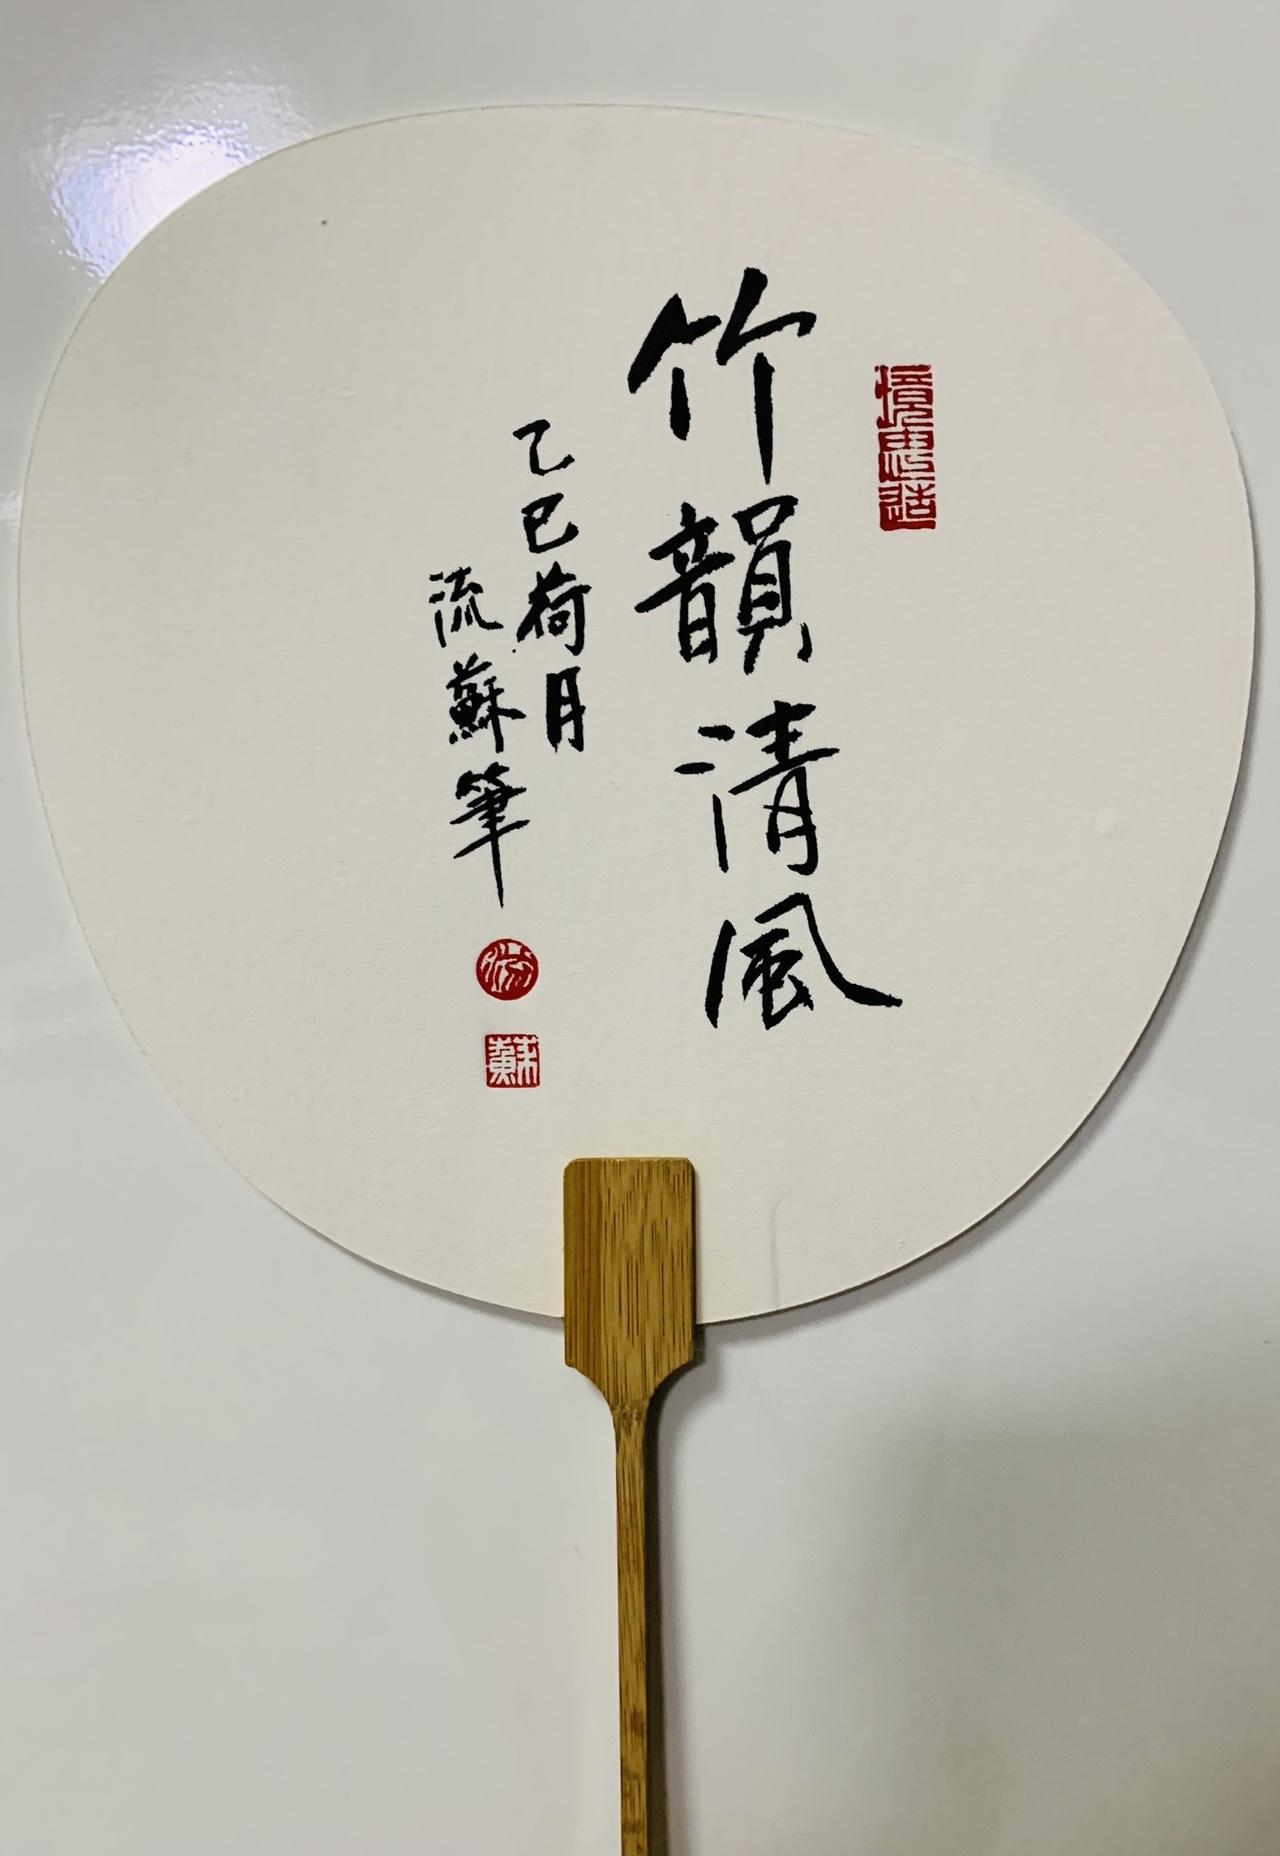 竹韻清風
乙巳荷月
流蘇筆
蘇